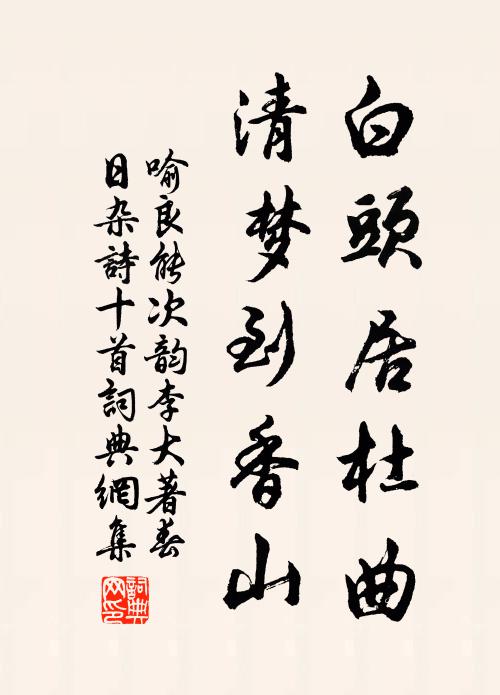 白頭居杜曲
清梦到香山
喻良能次韵李大著春
日杂詩十首詞典網集
詞典